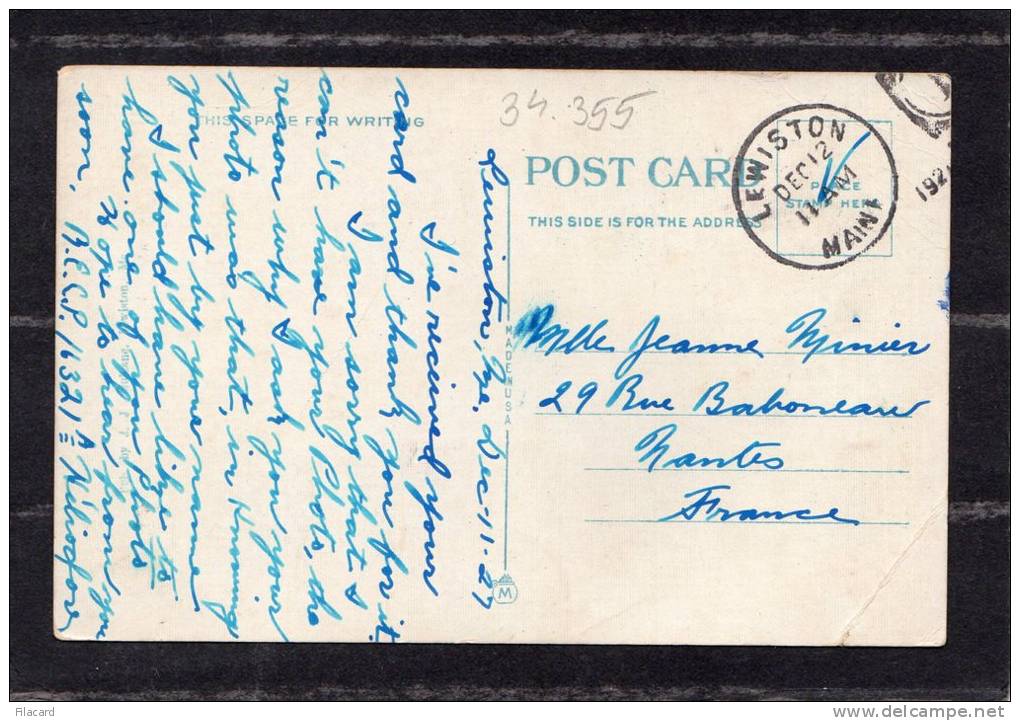 34.355
THIS SPACE FOR WRITING
POST CARD
THIS SIDE IS FOR THE ADDRESS
LEWISTON
DEC 12
11 AM
MAINE
192
Lewiston, Me. Dec-11-27
I've recieved your
card and thank you for it.
I am sorry that I
can't have your Photo, the
reason why I ask you your
photo was that, in Knowing
you just by your name
I should have like to
have one of your photo
Hope to hear from you
soon.
MADE IN USA
M
Mlle Jeanne Minier
29 Rue Baboneau
Nantes
France
Filacard
www.delcampe.net